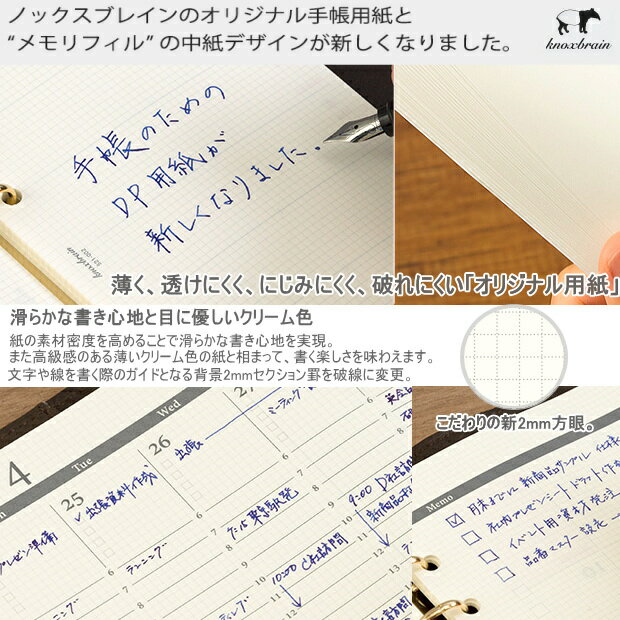 ノックスブレインのオリジナル手帳用紙と
“メモリフィル” の中紙デザインが新しくなりました。
knoxbrain
手帳のための
DP用紙が
新しくなりました。
knoxbrain
薄く、透けにくく、にじみにくく、破れにくい「オリジナル用紙」
滑らかな書き心地と目に優しいクリーム色
紙の素材密度を高めることで滑らかな書き心地を実現。
また高級感のある薄いクリーム色の紙と相まって、書く楽しさを味わえます。
文字や線を書く際のガイドとなる背景2mmセクション罫を破線に変更。
こだわりの新2mm方眼。
4
Tue
Wed
25
26
27
出張資料作成
出張
ミーティング
プレゼン準備
ランニング
7:15
9:00 D社訪問
10:00 C社訪問
Memo
月末までに新商品サンプル
社内プレゼンシートドラフト
イベント用
品番マスター設定